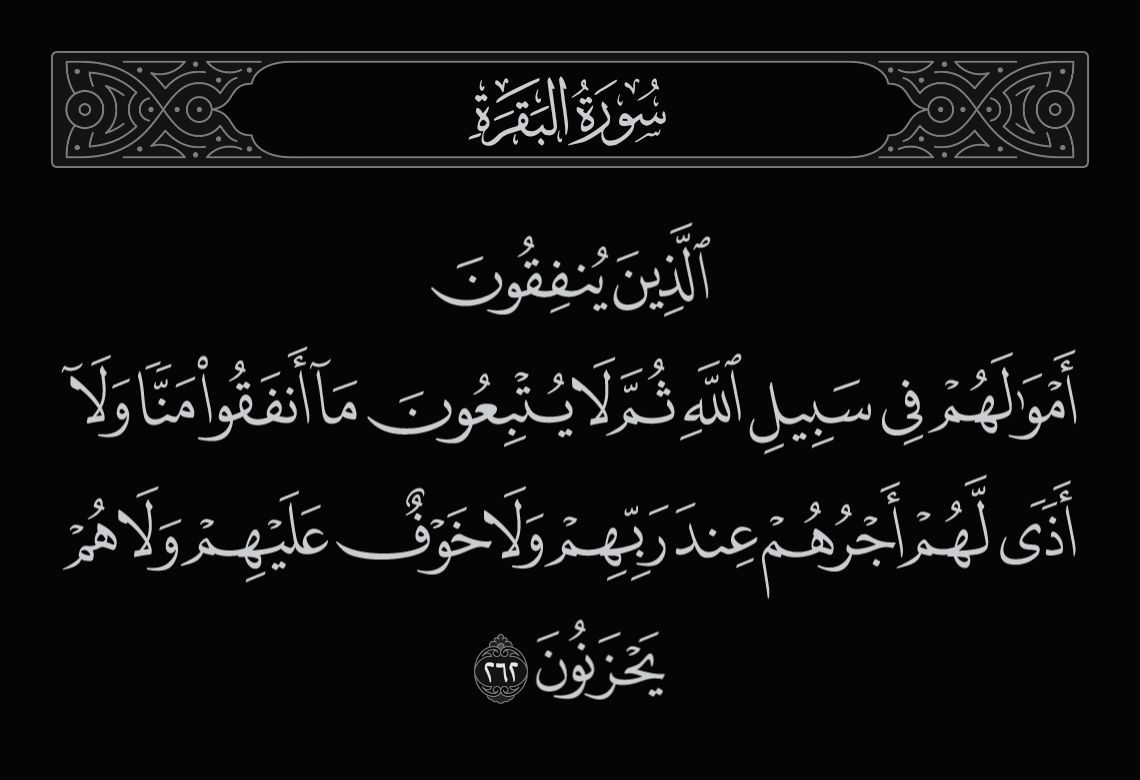 سُورَةُ البَقَرَةِ
ٱلَّذِينَ يُنفِقُونَ
أَمْوَٰلَهُمْ فِى سَبِيلِ ٱللَّهِ ثُمَّ لَا يُتْبِعُونَ مَآ أَنفَقُوا۟ مَنًّا وَلَآ
أَذًى لَّهُمْ أَجْرُهُمْ عِندَ رَبِّهِمْ وَلَا خَوْفٌ عَلَيْهِمْ وَلَا هُمْ
يَحْزَنُونَ ٢٦٢